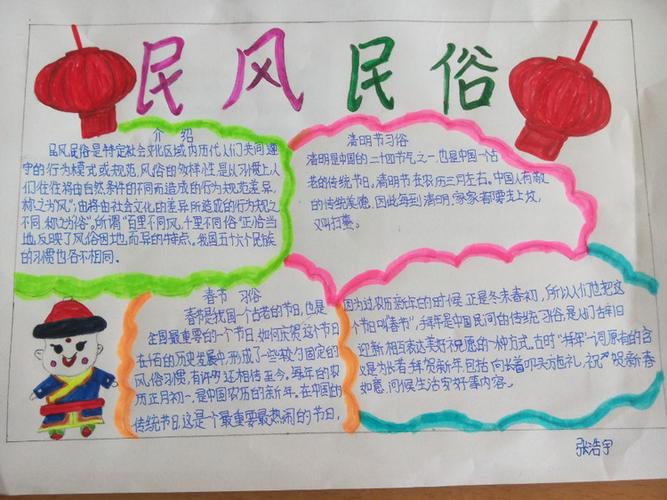 民风民俗
介绍
民风民俗是特定社会文化区域内历代人们共同遵
守的行为模式或规范。风俗的多样性是以习惯上人
们往往将由自然条件的不同而造成的行为规范差异,
称之为"风";由将由社会文化的差异所造成的行为规之
不同,称之为"俗"。所谓"百里不同风,千里不同俗"正恰当
地反映了风俗因地而异的特点。我国五十六个民族
的习惯也各不相同.
清明节习俗
清明是中国的二十四节气之一,也是中国一个古
老的传统节日,清明节在农历三月左右。中国人有敬
的传统美德,因此每到清明,家家都要去上坟,
又叫扫墓。
春节 习俗
春节是我国一个古老的节日,也是
全国最重要的一个节日,如何庆贺这个节日
在千百的历史发展中,形成了一些较为固定的
风俗习惯,有许多还相传至今。每年的农
历正月初一,是中国农历的新年。在中国的
传统节日,这是个最重要最热闹的节日,
因为过农历新年的时候 正是冬末春初,所以人们也把这
个节日叫"春节",拜年是中国民间的传统习俗,是人们辞旧
迎新.相互表达美好祝愿的一种方式。古时"拜年"一词原有的含
义是为长者 拜贺新年,包括 向长者叩头施礼,祝"贺新春
如意,问候生活安好等内容。
张浩宇